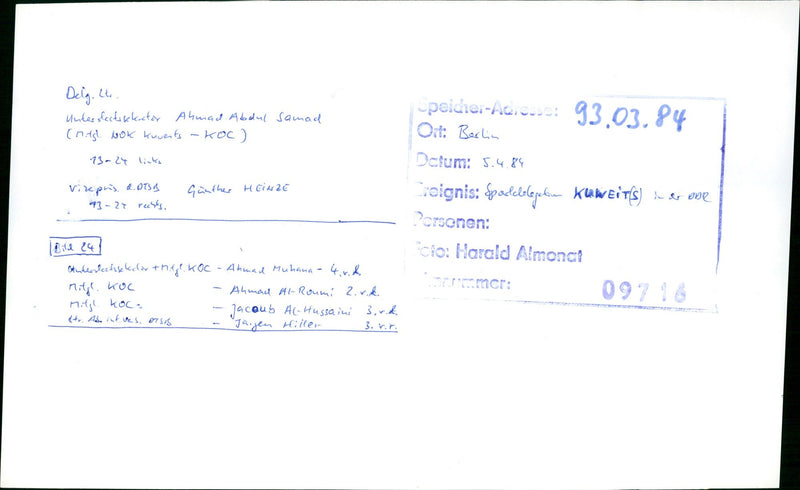 Delg. Ltr.
Unterstaatssekretär Ahmad Abdul Samad
(Mitgl. NOK Kuwaits - KOC)
13-24 links
Vizepräs. d. DTSB Günther HEINZE
13-24 rechts.
Bild 24
Unterstaatssekretär + Mitgl. KOC - Ahmad Muhana - 4. v. l.
Mitgl. KOC - Ahmad Al-Roumi 2. v. l.
Mitgl. KOC - Jacoub Al-Hussaini 3. v. l.
DTSB - Jürgen Hiller 3. v. r.
Speicher-Adresse: 93.03.84
Ort: Berlin
Datum: 5.4.84
Ereignis: Sportdelegation KUWEIT(S) in der DDR
Personen:
Foto: Harald Almonat
09716